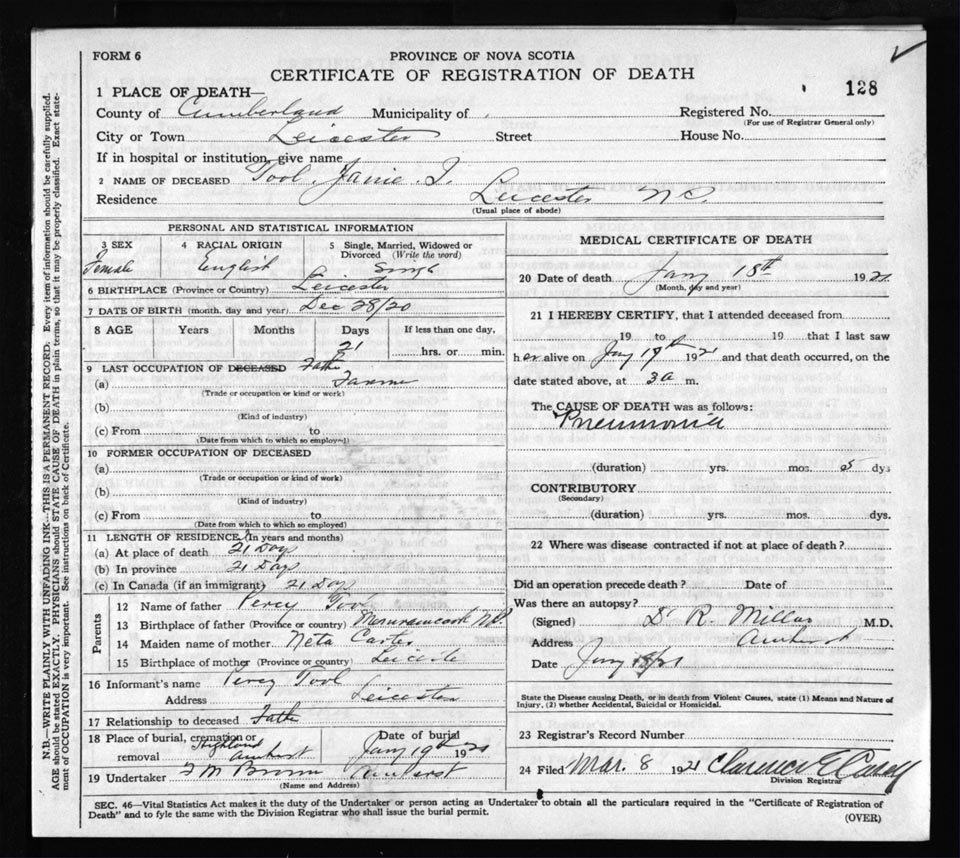 FORM 6
PROVINCE OF NOVA SCOTIA
CERTIFICATE OF REGISTRATION OF DEATH
128
1 PLACE OF DEATH—
County of Cumberland Municipality of Registered No.
(For use of Registrar General only)
City or Town Leicester Street House No.
If in hospital or institution, give name
2 NAME OF DECEASED Tool Janie I.
Residence Leicester N.S.
(Usual place of abode)
PERSONAL AND STATISTICAL INFORMATION
3 SEX 4 RACIAL ORIGIN 5 Single, Married, Widowed or Divorced (Write the word)
Female English Single
6 BIRTHPLACE (Province or Country) Leicester
7 DATE OF BIRTH (month, day and year) Dec 28/20
8 AGE Years Months Days If less than one day,
21 hrs. or min.
9 LAST OCCUPATION OF DECEASED Father
(a) Farmer
(Trade or occupation or kind of work)
(b)
(Kind of industry)
(c) From to
(Date from which to which so employed)
10 FORMER OCCUPATION OF DECEASED
(a)
(Trade or occupation or kind of work)
(b)
(Kind of industry)
(c) From to
(Date from which to which so employed)
11 LENGTH OF RESIDENCE (In years and months)
(a) At place of death 21 Days
(b) In province 21 Days
(c) In Canada (if an immigrant) 21 Days
Parents
12 Name of father Percy Tool
13 Birthplace of father (Province or country) Memramcook N.B.
14 Maiden name of mother Neta Carter
15 Birthplace of mother (Province or country) Leicester
16 Informant's name Percy Tool
Address Leicester
17 Relationship to deceased Father
18 Place of burial, cremation or removal Highland Amherst Date of burial Jany 19th 1921
19 Undertaker F M Brown Amherst
(Name and Address)
MEDICAL CERTIFICATE OF DEATH
20 Date of death Jany 18th 1921
(Month, day and year)
21 I HEREBY CERTIFY, that I attended deceased from
19 to 19 that I last saw
her alive on Jany 17th 1921 and that death occurred, on the
date stated above, at 3 a m.
The CAUSE OF DEATH was as follows:
Pneumonia
(duration) yrs. mos. 5 dys
CONTRIBUTORY
(Secondary)
(duration) yrs. mos. dys.
22 Where was disease contracted if not at place of death?
Did an operation precede death? Date of
Was there an autopsy?
(Signed) Dr R. Millar M.D.
Address Amherst
Date Jany /21
State the Disease causing Death, or in death from Violent Causes, state (1) Means and Nature of
Injury, (2) whether Accidental, Suicidal or Homicidal.
23 Registrar's Record Number
24 Filed Mar. 8 1921 Clarence E Casey
Division Registrar
SEC. 46—Vital Statistics Act makes it the duty of the Undertaker or person acting as Undertaker to obtain all the particulars required in the "Certificate of Registration of
Death" and to fyle the same with the Division Registrar who shall issue the burial permit.
(OVER)
N.B.—WRITE PLAINLY WITH UNFADING INK—THIS IS A PERMANENT RECORD. Every item of information should be carefully supplied.
AGE should be stated EXACTLY. PHYSICIANS should STATE CAUSE OF DEATH in plain terms, so that it may be properly classified. Exact state-
ment of OCCUPATION is very important. See instructions on back of Certificate.